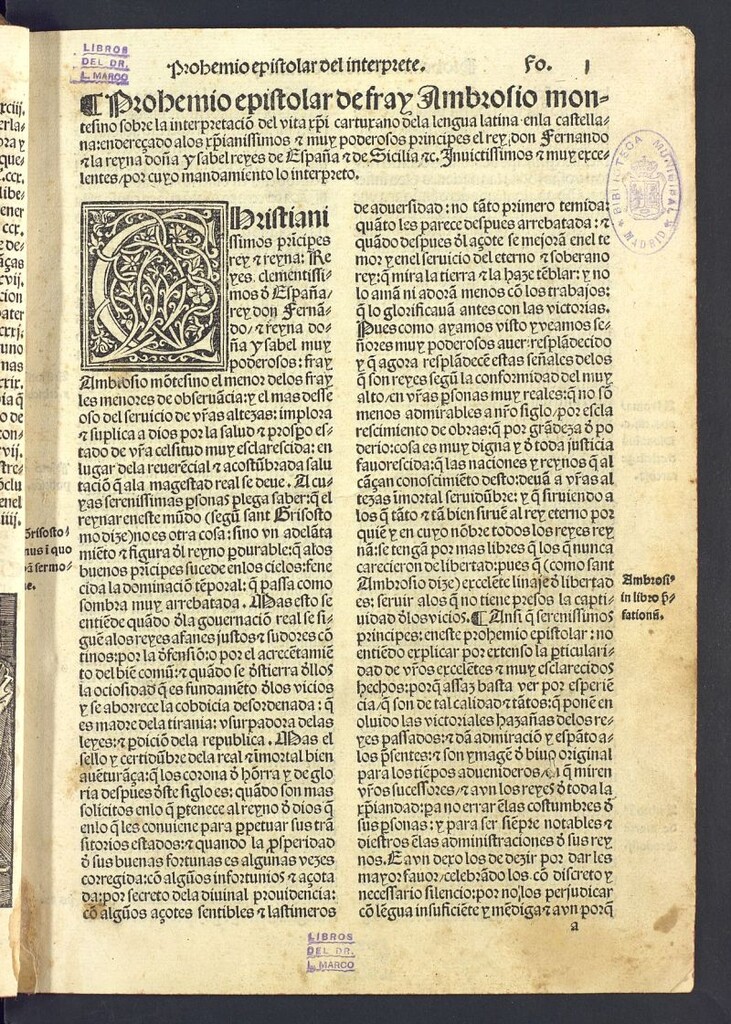 LIBROS
DEL DR.
L. MARCO
Prohemio epistolar del interprete.
Fo. I
¶ Prohemio epistolar de fray Ambrosio mon-
tesino sobre la interpretaciõ del vita xp̃i cartuxano dela lengua latina enla castella-
na: endereçado alos xp̃ianissimos ⁊ muy poderosos principes el rey, don Fernando
⁊ la reyna doña ysabel reyes de España ⁊ de Sicilia ⁊c. Inuictissimos ⁊ muy exce-
lentes/ por cuyo mandamiento lo interpreto.
CHristiani
ssimos prĩcipes
rey ⁊ reyna: Re
yes clementissi-
mos õ España/
rey don Fernã-
do/ ⁊ reyna do-
ña ysabel muy
poderosos: fray
Ambrosio mõtesino el menor delos fray
les menores de obseruãcia: y el mas desse
oso del seruicio de vr̃as altezas: implora
⁊ suplica a dios por la salud ⁊ prospo es-
tado de vr̃a celsitud muy esclarescida: en
lugar dela reuerẽcial ⁊ acostũbrada salu
taciõ q̃ ala magestad real se deue. A cu-
yas serenissimas p̃sonas plega saber: q̃ el
reynar eneste mũdo (segũ sant Grisosto
mo dize) no es otra cosa: sino vn adelãta
miẽto ⁊ figura õl reyno p̃durable: q̃ alos
buenos prĩcipes sucede enlos cielos: fene
cida la dominaciõ tẽporal: q̃ passa como
sombra muy arrebatada. Mas esto se
entiẽde quãdo õla gouernaciõ real se si-
guẽ alos reyes afanes justos ⁊ sudores cõ
tinos: por la õfensiõ: o por el acrecẽtamiẽ
to del biẽ comũ: ⁊ quãdo se õstierra õllos
la ociosidad q̃ es fundamẽto õlos vicios
y se aborrece la cobdicia desordenada: q̃
es madre dela tirania: vsurpadora delas
leyes: ⁊ p̃diciõ dela republica. Mas el
sello y certidũbre dela real ⁊ ĩmortal bien
auẽturãça: q̃ los corona õ hõrra y de glo
ria despues õste siglo es: quãdo son mas
solicitos enlo q̃ p̃tenece al reyno õ dios q̃
enlo q̃ les conuiene para p̃petuar sus trã
sitorios estados: ⁊ quando la p̃speridad
õ sus buenas fortunas es algunas vezes
corregida: cõ algũos infortunios ⁊ açota
da: por secreto dela diuinal prouidencia:
cõ algũos açotes sentibles ⁊ lastimeros
de aduersidad: no tãto primero temida:
quãto les parece despues arrebatada: ⁊
quãdo despues õl açote se mejorã enel te
mor y enel seruicio del eterno ⁊ soberano
rey: q̃ mira la tierra ⁊ la haze tẽblar: y no
lo amã ni adorã menos cõ los trabajos:
q̃ lo glorificauã antes con las victorias.
Pues como ayamos visto y veamos se-
ñores muy poderosos auer resplãdecido
y q̃ agora resplãdecẽ estas señales delos
q̃ son reyes segũ la conformidad del muy
alto/ en vr̃as p̃sonas muy reales: q̃ no sõ
menos admirables a nr̃o siglo/ por escla
rescimiento de obras: q̃ por grãdeza õ po
derio: cosa es muy digna y õ toda justicia
fauorescida: q̃ las naciones y reynos q̃ al
cãçan conoscimiẽto desto: deuã a vr̃as al
tezas ĩmortal seruidũbre: y q̃ siruiendo a
los q̃ tãto ⁊ tã bien siruẽ al rey eterno por
quiẽ y en cuyo nõbre todos los reyes rey
nã: se tengã por mas libres q̃ los q̃ nunca
carecieron de libertad: pues q̃ (como sant
Ambrosio dize) excelẽte linaje õ libertad
es: seruir alos q̃ no tiene presos la capti-
uidad õlos vicios. ¶ Ansi q̃ serenissimos
principes: eneste prohemio epistolar: no
entiẽdo explicar por extenso la p̃ticulari-
dad de vr̃os excelẽtes ⁊ muy esclarecidos
hechos: porq̃ assaz basta ver por esperiẽ
cia/ q̃ son de tal calidad ⁊ tãtos: q̃ ponẽ en
oluido las victoriales hazañas delos re-
yes passados: ⁊ dã admiraciõ y espãto a-
los p̃sentes: ⁊ son ymagẽ õ biuo original
para los tiẽpos aduenideros/ q̃ miren
vr̃os sucessores/ ⁊ avn los reyes õ toda la
xp̃iandad: pa no errar ẽlas costumbres õ
sus p̃sonas: y para ser siẽpre notables ⁊
diestros ẽlas administraciones õ sus rey
nos. E avn dexo los de dezir por dar les
mayor fauor/ celebrãdo los cõ discreto y
necessario silencio: por no los perjudicar
cõ lẽgua insuficiẽte y mẽdiga ⁊ avn porq̃
a
Grisosto-
mus ĩ quo
sermo-
Ambrosi⁹
in libro p̃-
fationũ.
BIBLIOTECA MUNICIPAL
MADRID
LIBROS
DEL DR.
L. MARCO